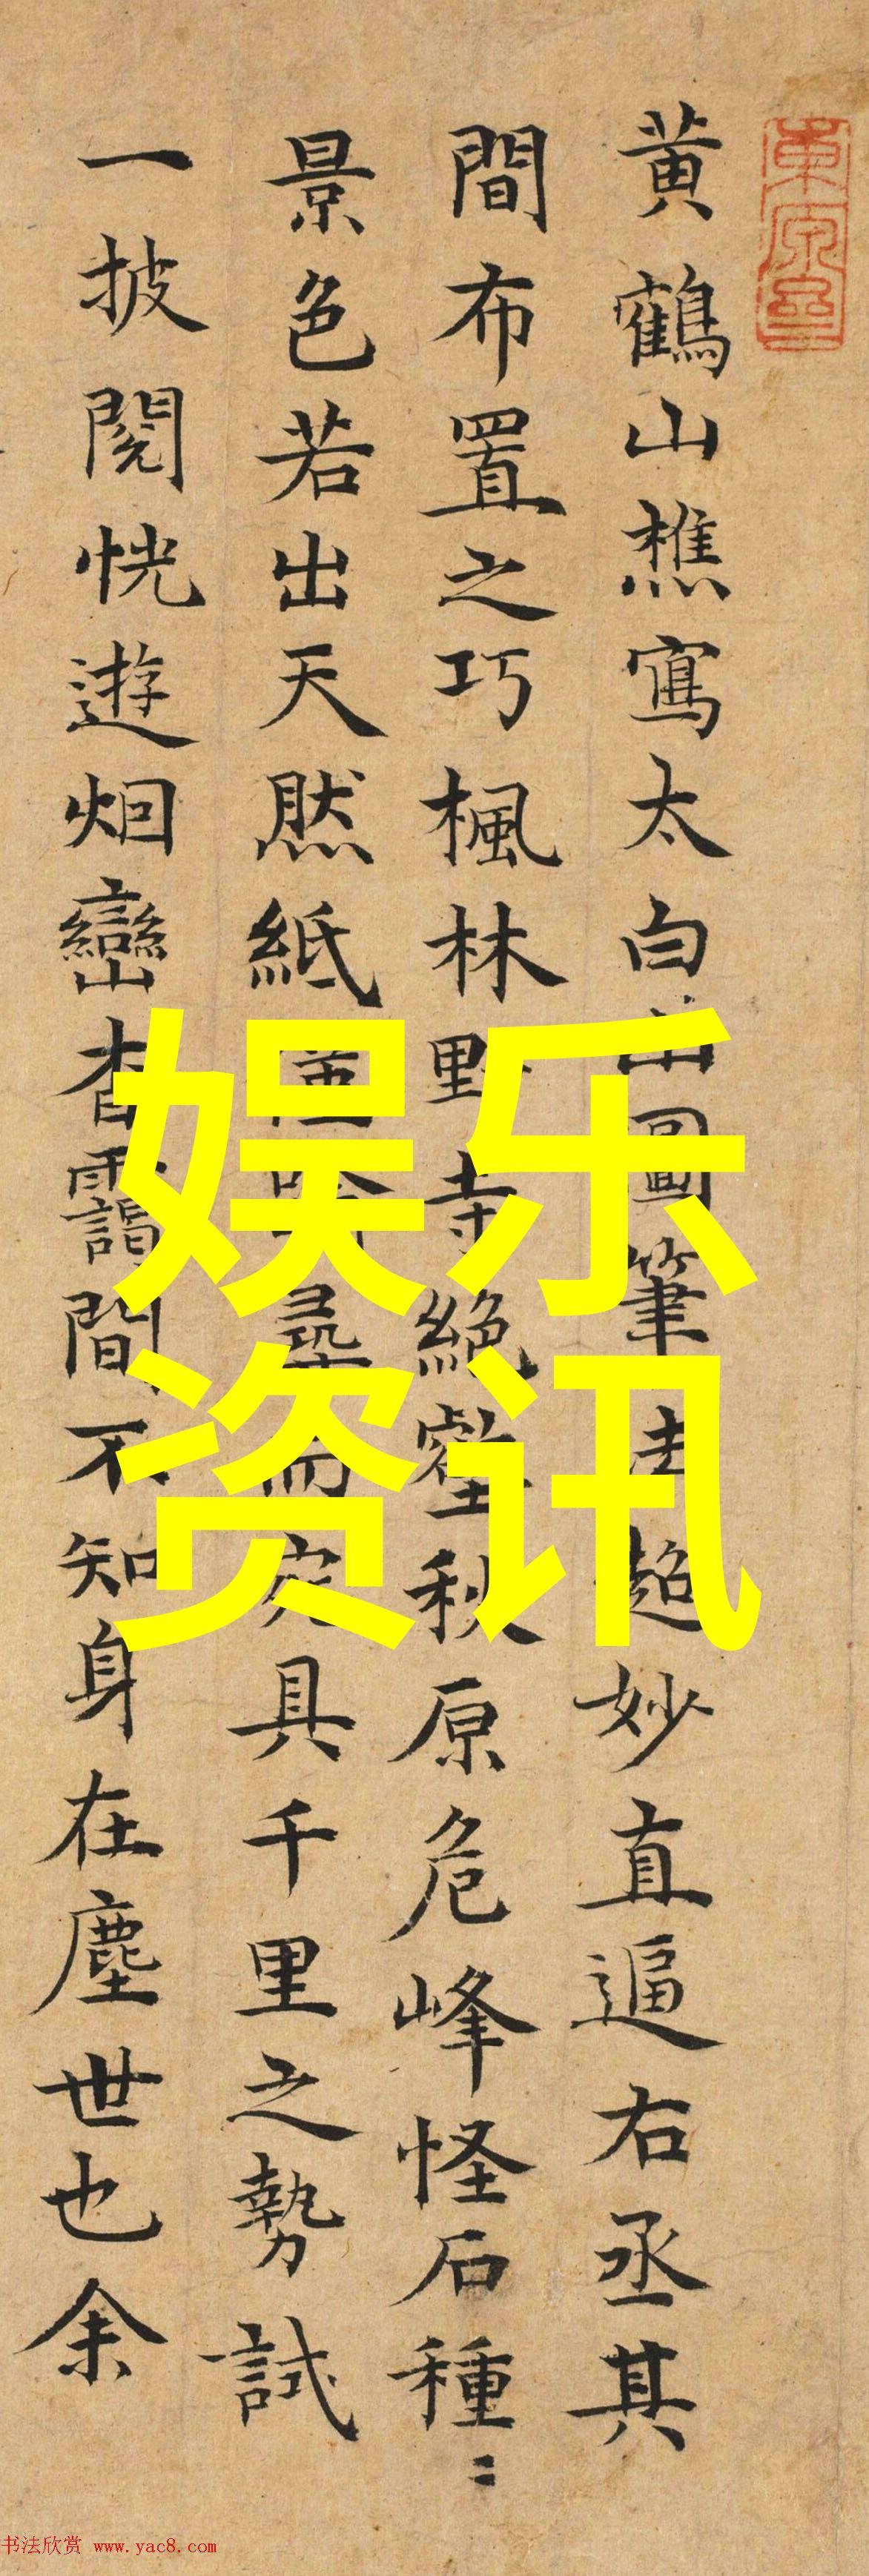 東原
黄鶴山樵寫太白山圖筆法超妙直逼右丞其
間布置之巧楓林野寺絶壑秋原危峰怪石種〻
景色若出天然紙而宛具千里之勢試
一披閲恍遊烟巒杳靄間不知身在塵世也余
娱乐
资讯
书法欣赏 www.yac8.com